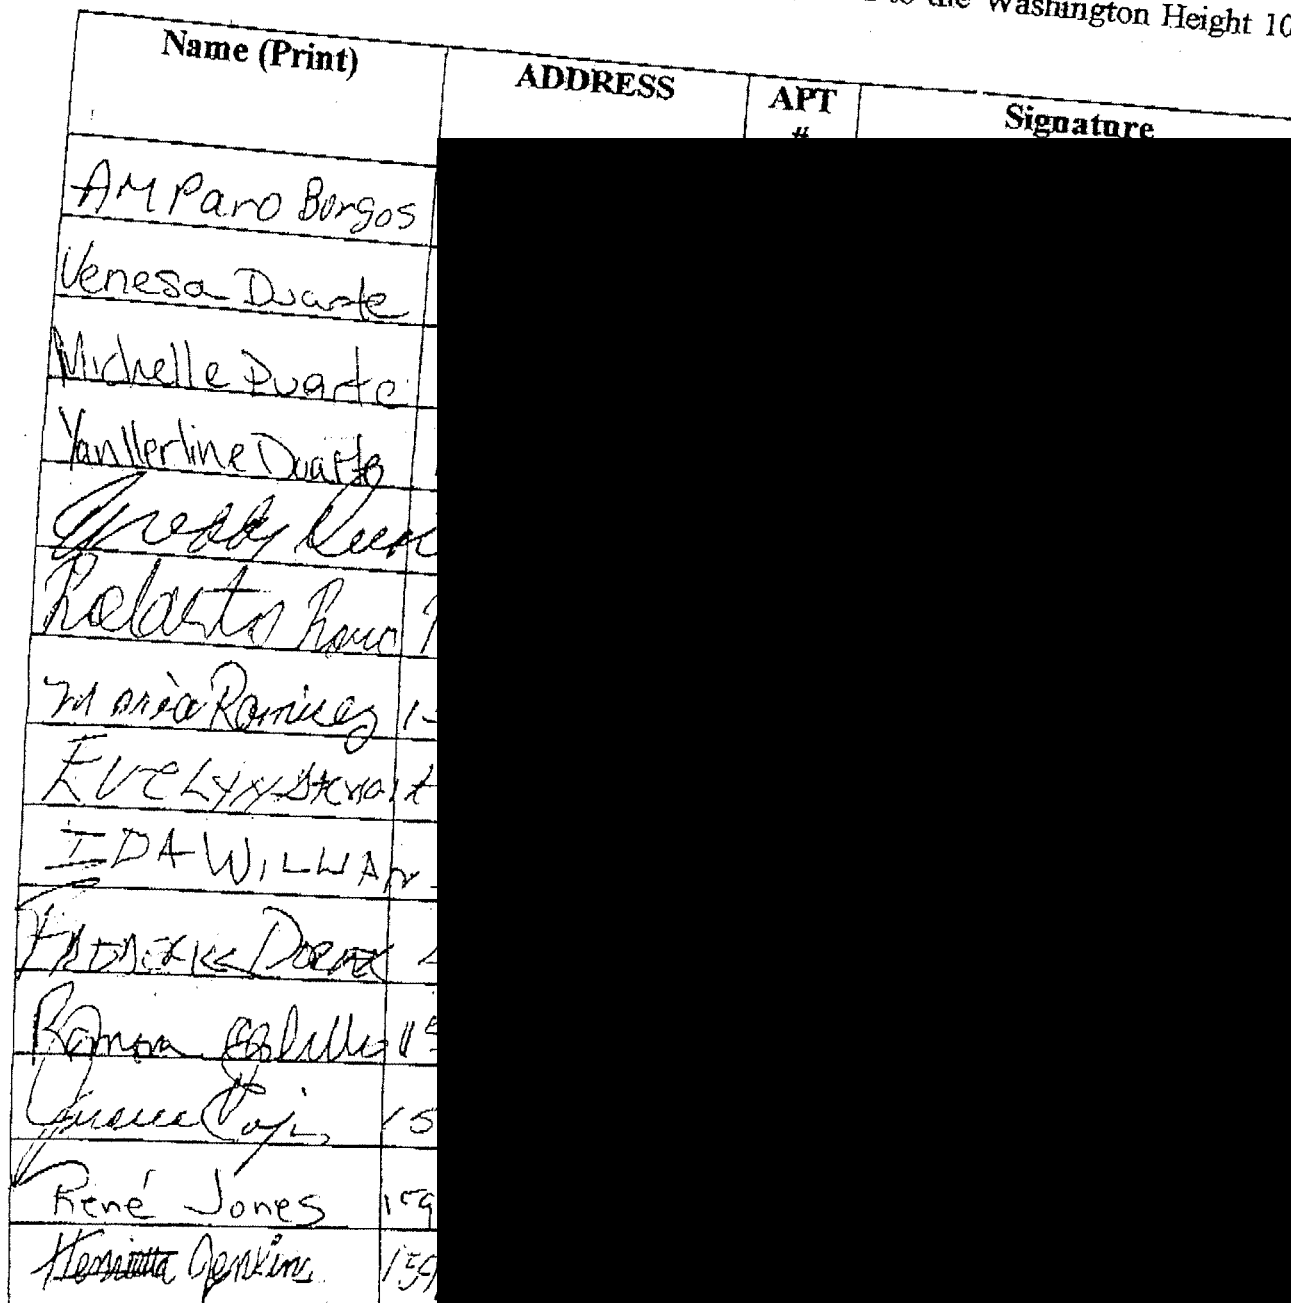 to the Washington Height 10
Name (Print) ADDRESS APT # Signature
AMParo Burgos
Venesa Duarte
Michelle Duarte
Yanllerline Duarte
Freddy
Roberto
Maria Ramirez 1
EVELyN
IDA WILLIAM
Ramon 15
15
René Jones 159
Henrietta Jenkins 159